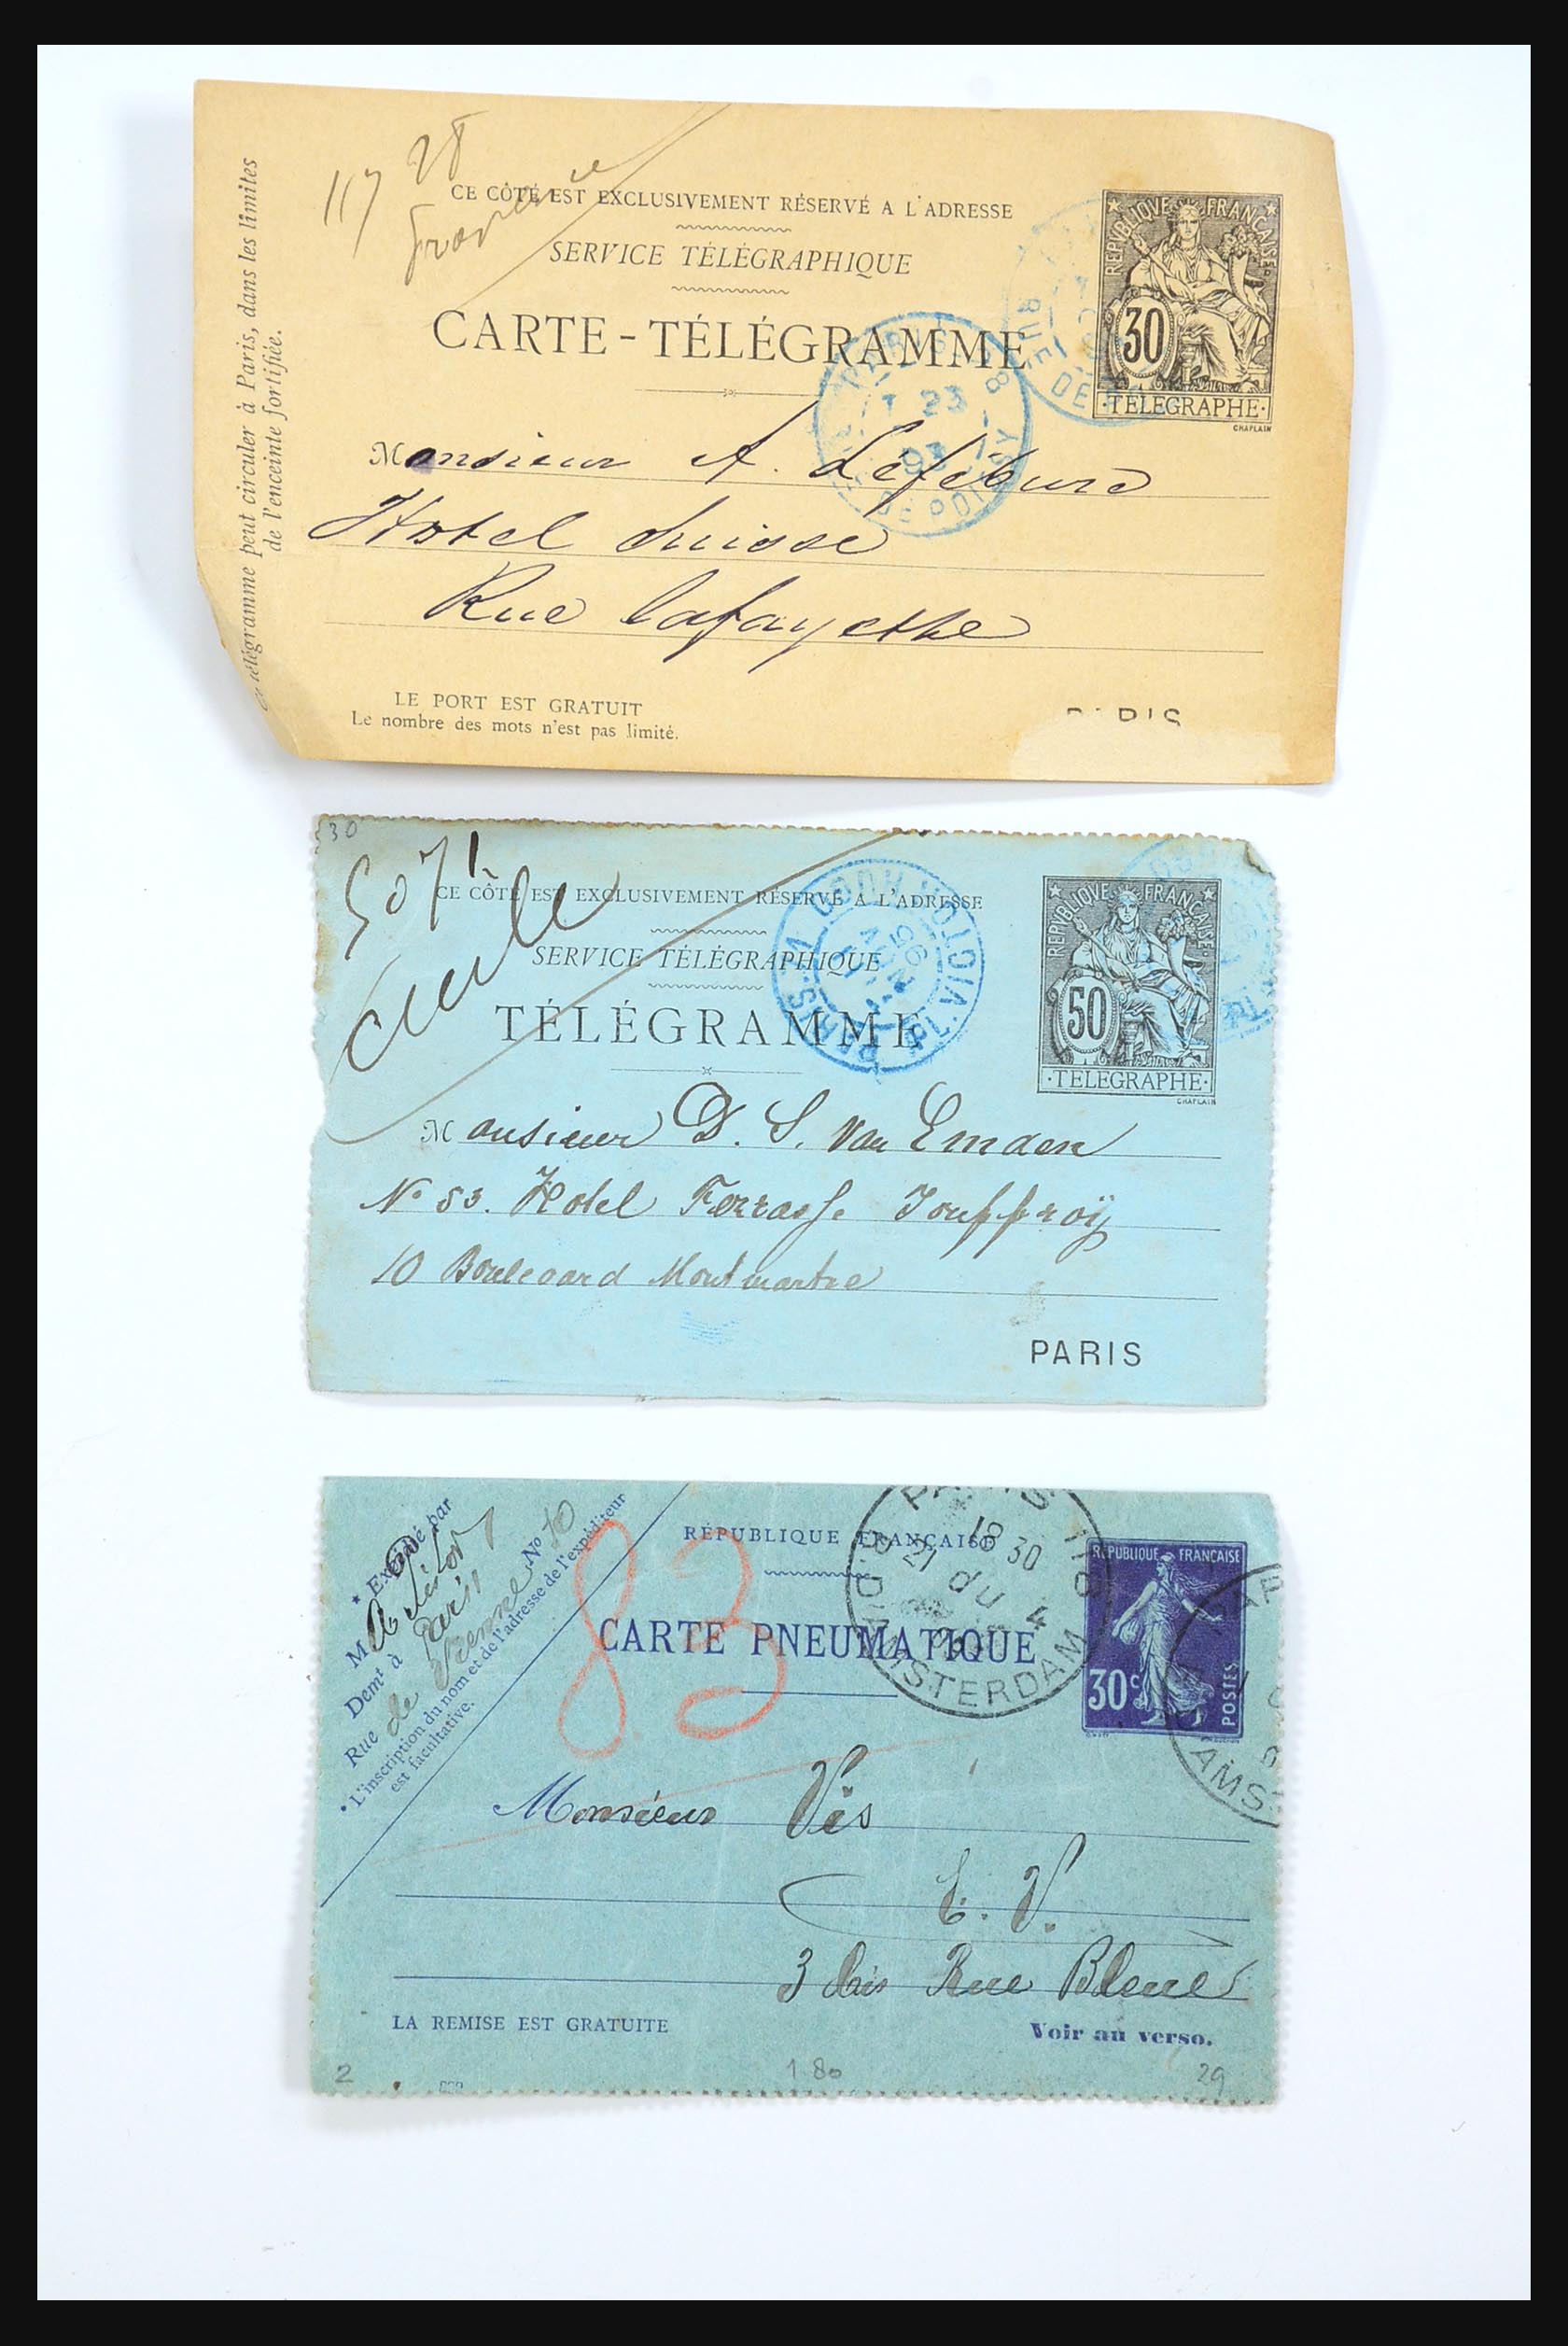 117 28
CE CÔTÉ EST EXCLUSIVEMENT RÉSERVÉ A L'ADRESSE
SERVICE TÉLÉGRAPHIQUE
CARTE-TÉLÉGRAMME
REPUBLIQUE FRANÇAISE
30
·TELEGRAPHE·
CHAPLAIN
RUE DE
PARIS 8
23
93
DE POISSY
Monsieur A. Lefebure
Hotel Suisse
Rue Lafayette
télégramme peut circuler à Paris, dans les limites
de l'enceinte fortifiée.
LE PORT EST GRATUIT
Le nombre des mots n'est pas limité.
PARIS
30
507
CE CÔTÉ EST EXCLUSIVEMENT RÉSERVÉ A L'ADRESSE
SERVICE TÉLÉGRAPHIQUE
TÉLÉGRAMME
PL. VICTOR HUGO
PARIS
96
REPUBLIQUE FRANÇAISE
50
·TELEGRAPHE·
CHAPLAIN
Monsieur D. S. van Emden
No 53. Hotel Terrasse Jouffroÿ
10 Boulevard Montmartre
PARIS
* Expédié par
M
Demt à Paris
Rue de Seine No 10
* L'inscription du nom et de l'adresse de l'expéditeur
est facultative.
83
RÉPUBLIQUE FRANÇAISE
CARTE PNEUMATIQUE
PARIS
18 30
21 du 4
R. D'AMSTERDAM
REPUBLIQUE FRANÇAISE
30c
POSTES
AMS
Monsieur Vis
E. V.
3 bis Rue Bleue
LA REMISE EST GRATUITE
Voir au verso.
2
1 80
29